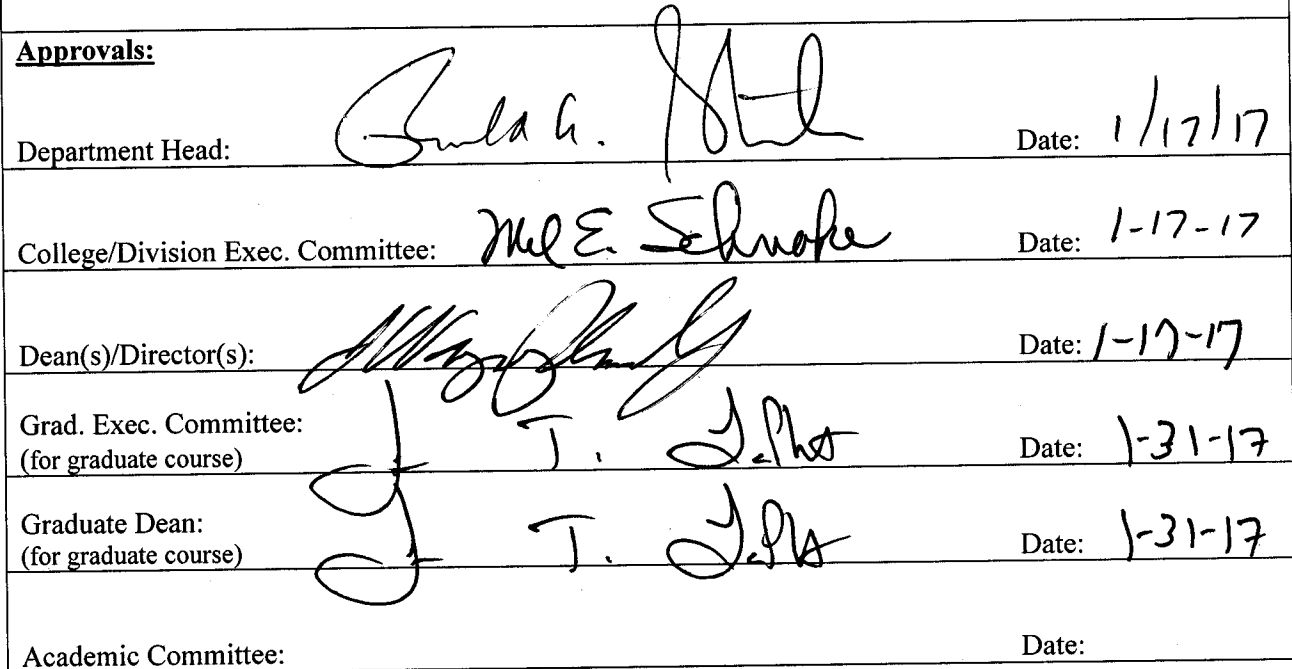 Approvals:
Department Head: Date: 1/17/17
College/Division Exec. Committee: Mel E. Schnake Date: 1-17-17
Dean(s)/Director(s): Date: 1-17-17
Grad. Exec. Committee:
(for graduate course) J T. Date: 1-31-17
Graduate Dean:
(for graduate course) J T. Date: 1-31-17
Academic Committee: Date: